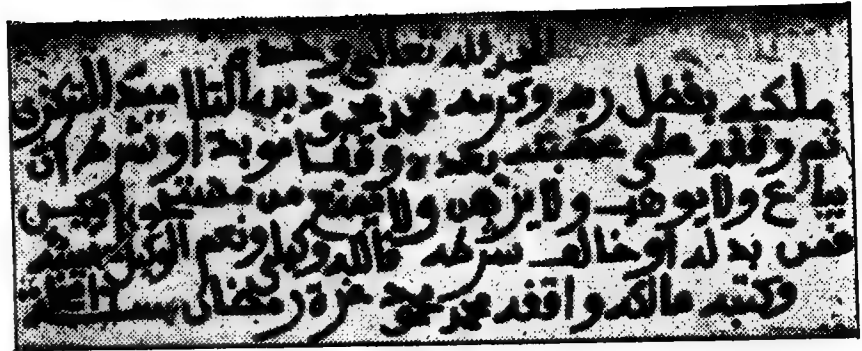 الحمد لله تعالى وحده
ملكه بفضل ربه وكرمه محمد محمود بن التلاميد التركزي
ثم وقفه على عصبته بعده وقفا مؤبدا وشرط أن
يباع ولا يوهب ولا يرهن ولا يمنع من مستحق
فمن بدله أو خالف شرطه فالله وكيلي ونعم الوكيل
وكتبه مالكه واقفه محمد محمود غرة رمضان سنة